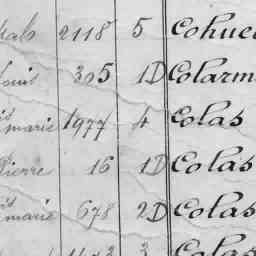 2118 5 Cohue
ouis 305 1D Colarm
marie 1977 4 Colas
Pierre 16 1D Colas
marie 678 2D Colas
3 Colas